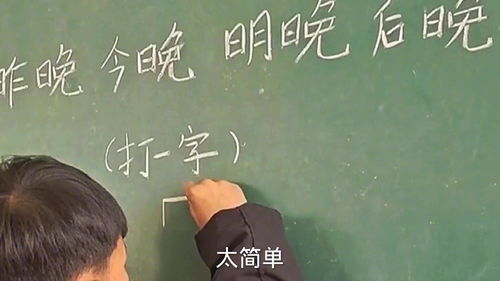 昨晚 今晚 明晚 后晚
(打一字)
太简单